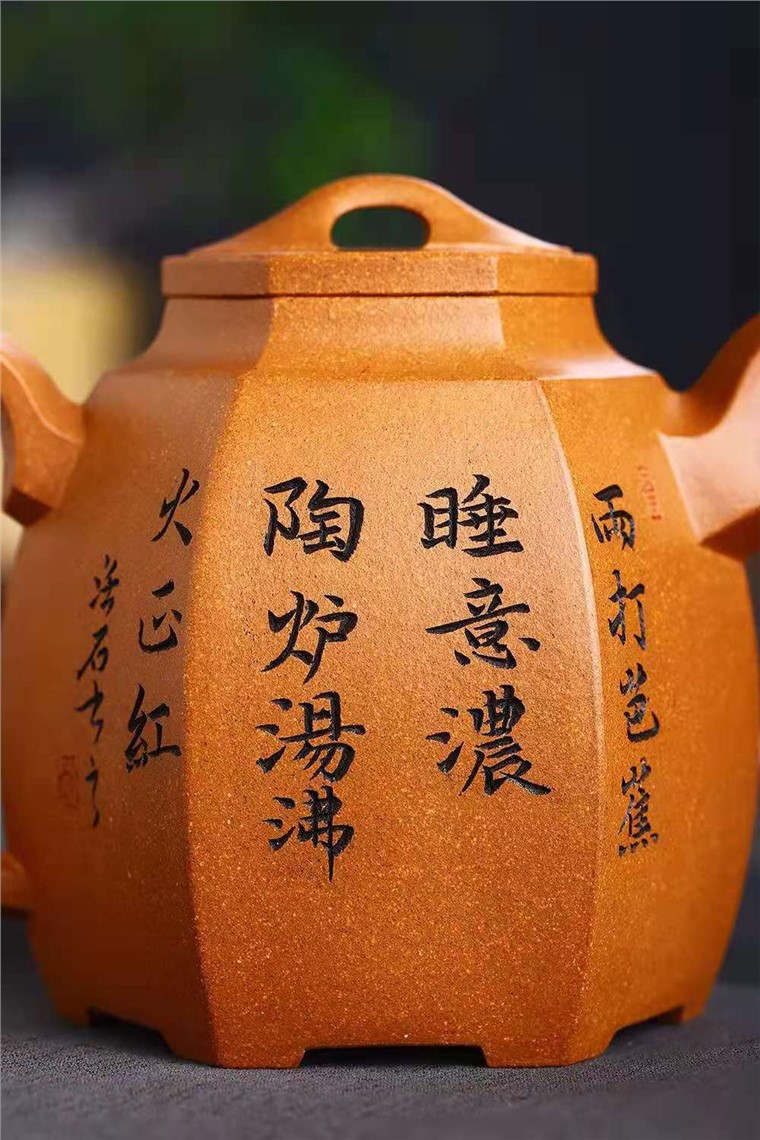 雨打芭蕉
睡意濃
陶炉湯沸
火正紅
石书之